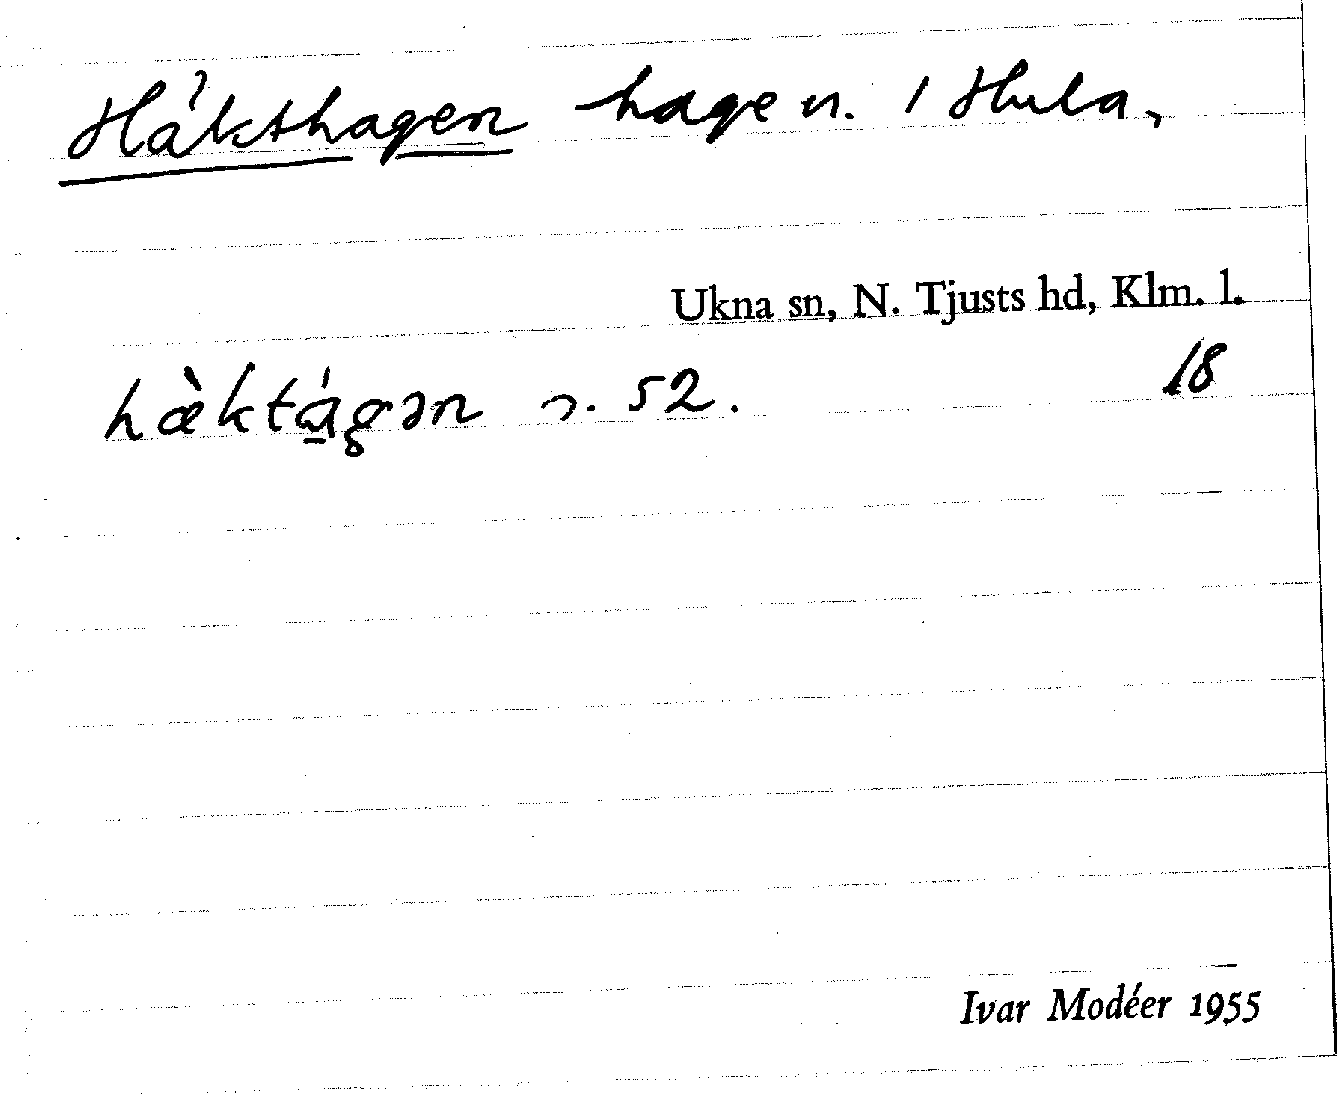 Häkthagen hage n. 1 Hula,
Ukna sn, N. Tjusts hd, Klm. l.
18
hæ̀ktá̱gən n. 52.
Ivar Modéer 1955